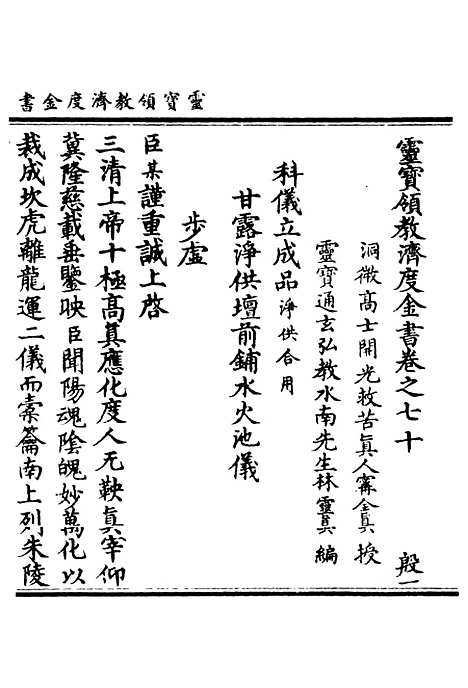 靈寶領教濟度金書
靈寶領教濟度金書卷之七十 殷一
洞微高士開光救苦眞人甯全眞 授
靈寶通玄弘教水南先生林靈眞 編
科儀立成品淨供合用
甘露淨供壇前鋪水火池儀
步虛
臣某謹重誠上啓
三清上帝十極高眞應化度人无鞅眞宰仰
冀隆慈載垂鑒映臣聞陽魂陰魄妙萬化以
裁成坎虎離龍運二儀而橐籥南上列朱陵